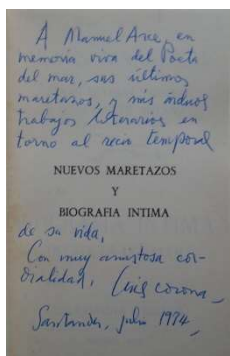 A Manuel Arce, en
memoria viva del Poeta
del mar, sus últimos
maretazos, y mis arduos
trabajos literarios en
torno al recio temporal
NUEVOS MARETAZOS
Y
BIOGRAFIA INTIMA
de su vida,
Con muy amistosa cor-
dialidad, Luis Corona
Santander, julio 1974